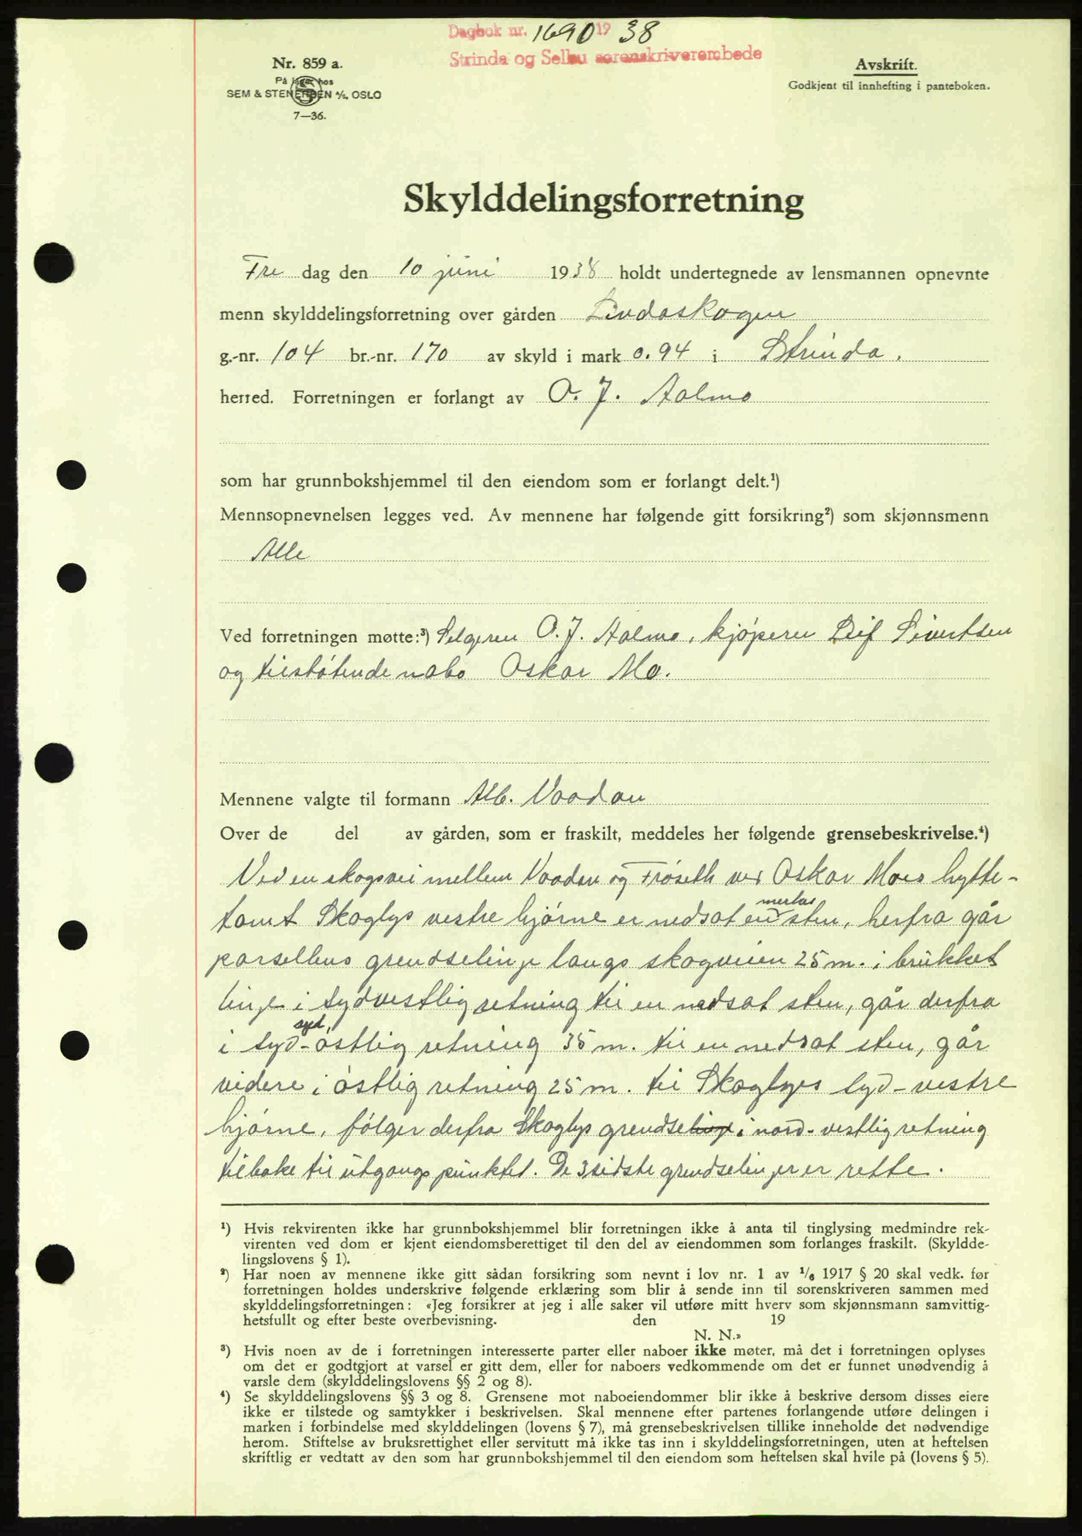 Dagbok nr. 1690 19 38
Strinda og Selbu sorenskriverembede
Nr. 859 a.
På lager hos
SEM & STENERSEN A/S, OSLO
7—36.
Avskrift.
Godkjent til innhefting i panteboken.
Skylddelingsforretning
Fre dag den 10 juni 1938 holdt undertegnede av lensmannen opnevnte
menn skylddelingsforretning over gården Lindaskogen
g.-nr. 104 br.-nr. 170 av skyld i mark 0.94 i Strinda.
herred. Forretningen er forlangt av O. J. Aalmo
som har grunnbokshjemmel til den eiendom som er forlangt delt.¹)
Mennsopnevnelsen legges ved. Av mennene har følgende gitt forsikring²) som skjønnsmenn
Alle
Ved forretningen møtte:³) Selgeren O. J. Aalmo, kjøperen Leif Sivertsen
og tilstøtende nabo Oskar Mo.
Mennene valgte til formann Alb. Vaadan
Over de del av gården, som er fraskilt, meddeles her følgende grensebeskrivelse.⁴)
Ved en skogsvei mellem Vaadan og Frøseth ved Oskar Moes hytte-
tomt Skoglys vestre hjørne er nedsat en merket sten, herfra går
parsellens grendselinje langs skogveien 25 m. i brukket
linje i sydvestlig retning til en nedsat sten, går derfra
i syd-syd østlig retning 35 m. til en nedsat sten, går
videre i østlig retning 25 m. til Skoglyes syd-vestre
hjørne, følger derfra Skoglys grendselinje i nord-vestlig retning
tilbake til utgangspunktet. De 3 sidste grendselinjer er rette.
¹) Hvis rekvirenten ikke har grunnbokshjemmel blir forretningen ikke å anta til tinglysing medmindre rek-
virenten ved dom er kjent eiendomsberettiget til den del av eiendommen som forlanges fraskilt. (Skyldde-
lingslovens § 1).
²) Har noen av mennene ikke gitt sådan forsikring som nevnt i lov nr. 1 av 1/6 1917 § 20 skal vedk. før
forretningen holdes underskrive følgende erklæring som blir å sende inn til sorenskriveren sammen med
skylddelingsforretningen: «Jeg forsikrer at jeg i alle saker vil utføre mitt hverv som skjønnsmann samvittig-
hetsfullt og efter beste overbevisning. den 19
N. N.»
³) Hvis noen av de i forretningen interesserte parter eller naboer ikke møter, må det i forretningen oplyses
om det er godtgjort at varsel er gitt dem, eller for naboers vedkommende om det er funnet unødvendig å
varsle dem (skylddelingslovens §§ 2 og 8).
⁴) Se skylddelingslovens §§ 3 og 8. Grensene mot naboeiendommer blir ikke å beskrive dersom disses eiere
ikke er tilstede og samtykker i beskrivelsen. Skal mennene efter partenes forlangende utføre delingen i
marken i forbindelse med skylddelingen (lovens § 7), må grensebeskrivelsen tillike inneholde det nødvendige
herom. Stiftelse av bruksrettighet eller servitutt må ikke tas inn i skylddelingsforretningen, uten at heftelsen
skriftlig er vedtatt av den som har grunnbokshjemmel til den eiendom som heftelsen skal hvile på (lovens § 5).